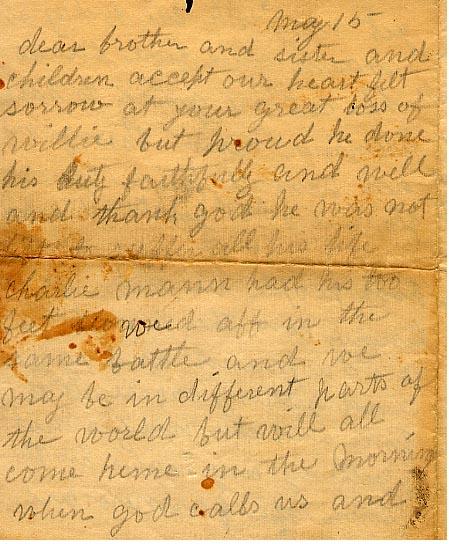 May 15
dear brother and sister and
children accept our heart felt
sorrow at your great loss of
Willie but proud he done
his duty faithfully and well
and thank god he was not
all his life
charlie mann had his too
feet off in the
same battle and we
may be in different parts of
the world but will all
come home in the morning
when god calls us and